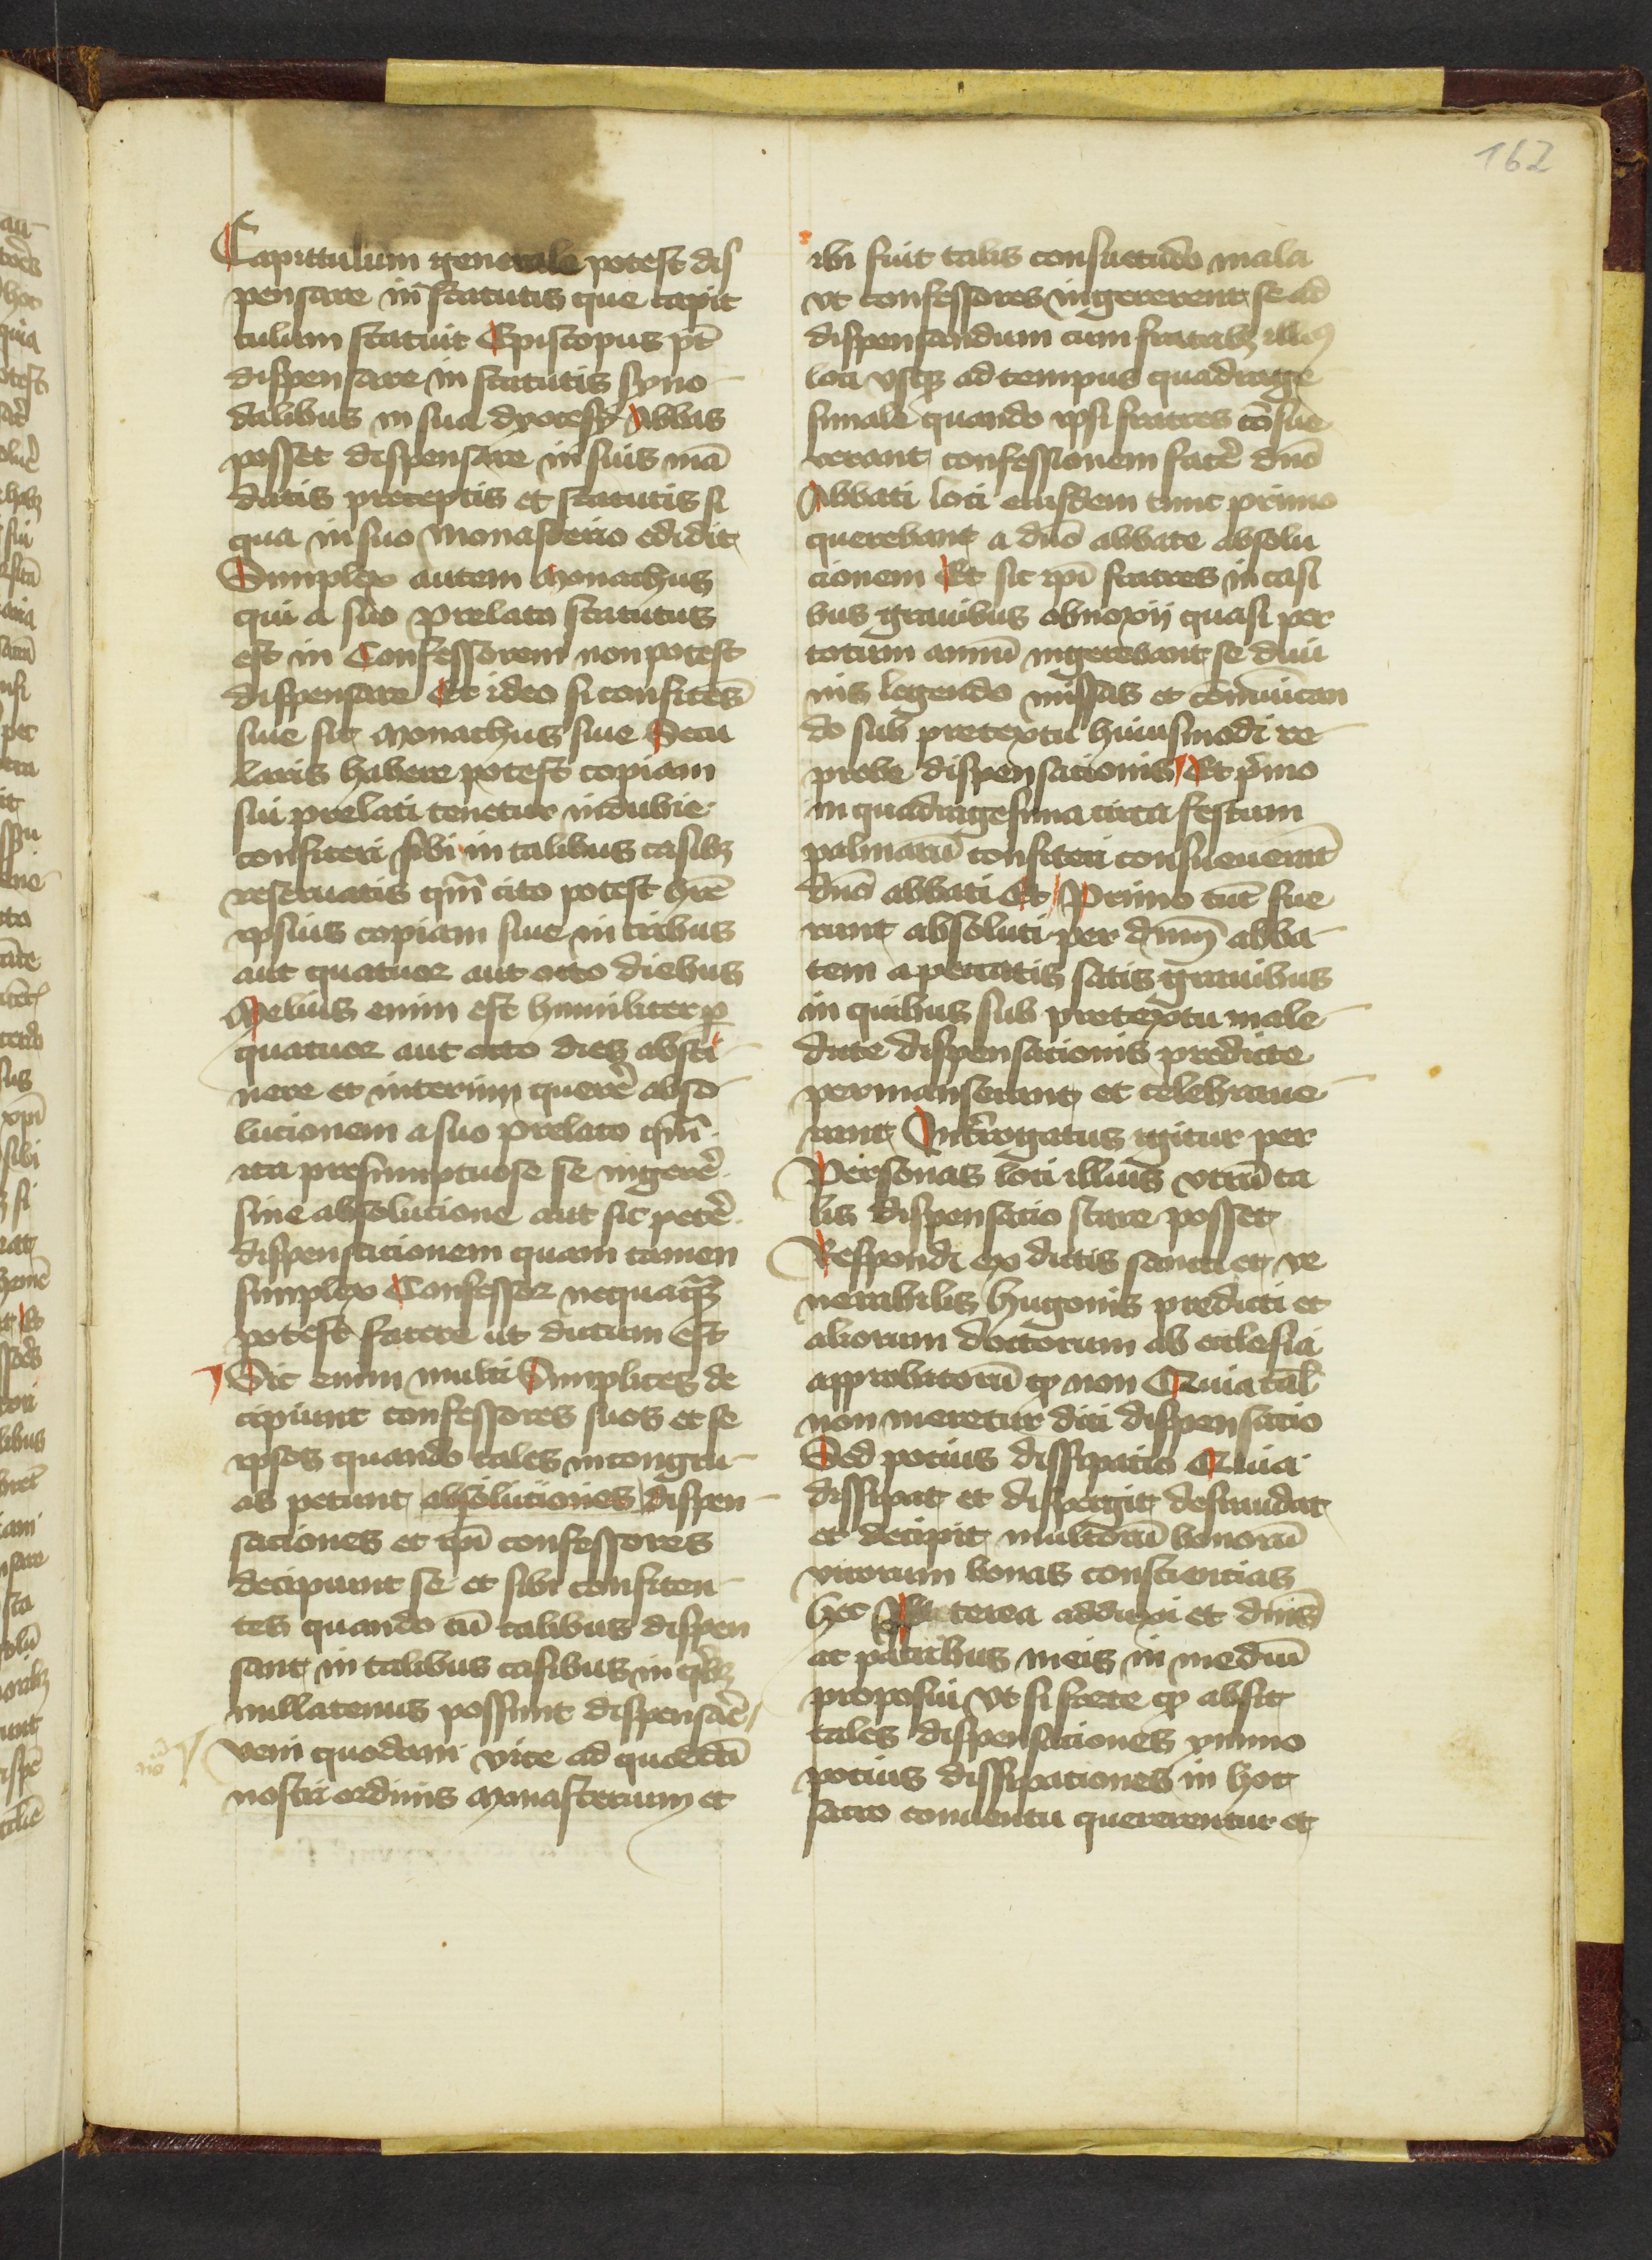 162
Capittulum generale potest dis
pensare in statutis que capit
tulum statuit Episcopus pt̄
dispensare in statutis syno
dalibus in sua dyocesi Abbas
posset dispensare in suis mā
datis preceptis et statutis si
qua in suo monasterio edidit
Simplex autem monachus
qui a suo prelato statutus
est in Confessorem non potest
dispensare Et ideo si confitēs
siue sit monachus siue Secu
laris habere potest copiam
sui prelati tenetur indubie
confiteri sibi in talibus casibꝫ
reseruatis qm̄ cito potest hr̄e
ipsius copiam siue in tribus
aut quatuor aut octo diebus
Melius enim est humiliter ꝑ
quatuor aut octo dies absti
nere et interim querer̄ abso
lucionem a suo prelato qm̄
ita presumptuose se ingerer̄
sine absolucione aut sic peter̄
dispensacionem quam tamen
simplex Confessor nequaqꝫ
potest facere ut dictum est
Sic enim multi Simplices de
cipiunt confessores suos et se
ipsos quando tales incongru
as petunt absoluciones dispen
saciones et ip̄i confessores
decipiunt se et sibi confiten
tes quando cū talibus dispen
sant in talibus casibus in qͥbꝫ
nullatenus possunt dispensar̄
veni quodam vice ad quoddā
nostri ordinis monasterium et
ibi fuit talis consuetudo mala
vt confessores ingererent se ad
dispensandum cum fratribꝫ illiꝰ
loci vsqꝫ ad tempus quadrage
simale quando ipsi fratres cōsue
uerant confessionem facer̄ dn̄o
Abbati loci eiusdem tunc primo
querebant a dn̄o abbate absolu
cionem Et sic ip̄i fratres in casi
bus grauibus obnoxij quasi per
totum annū ingerebant se diui
nis legendo missas et cōmūican
do sub pretextu huiusmodi re
probe dispensacionis Et p̄mo
in quadragesima circa festum
palmarū confiteri consueuerūt
dn̄o abbati Et Primo tūc fue
runt absoluti per dnm̄ abba
tem a peccatis satis grauibus
in quibus sub pretextu male
date dispensacionis predicte
permanserunt et celebraue
runt Int̄rogatus igitur per
Personas loci illius vtrū ta
lis dispensacio stare posset
Respondi ex dictis sancti et ve
nerabilis hugonis predicti et
aliorum doctorum ab ecclesia
approbatorū ꝙ non Quia tal̄
non meretur dici dispensacio
Sed potius dissipatio Quia
dissipat et dispergit defraudat
et decipit multorū bonorū
virorum bonas consciencias
hec terea adduxi et dn̄is
ac patribus meis in mediū
proposui vt si forte ꝙ absit
tales dispensaciones ymmo
potius dissipationes in hoc
sacro conuentu quererentur et